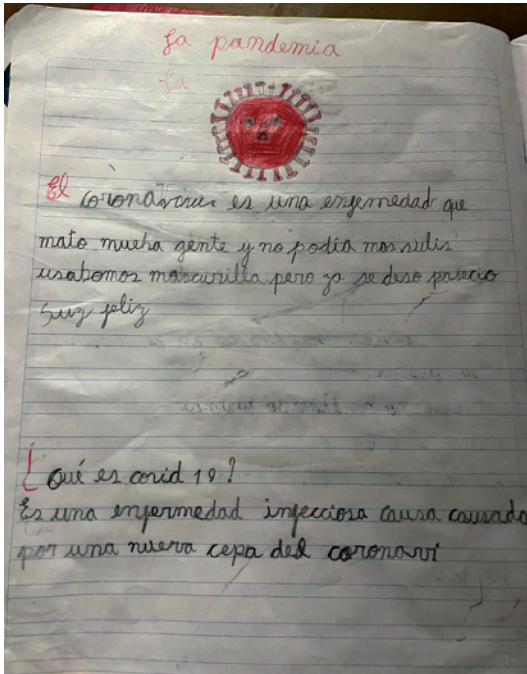 La pandemia
La
El coronavirus es una enfermedad que
mato mucha gente y no podia mos sulir
usabomos mascurilla pero ya se deso parecio
Suy feliz
¿Qué es covid 19?
Es una enfermedad infecciosa causa causado
por una nueva cepa del coronavi